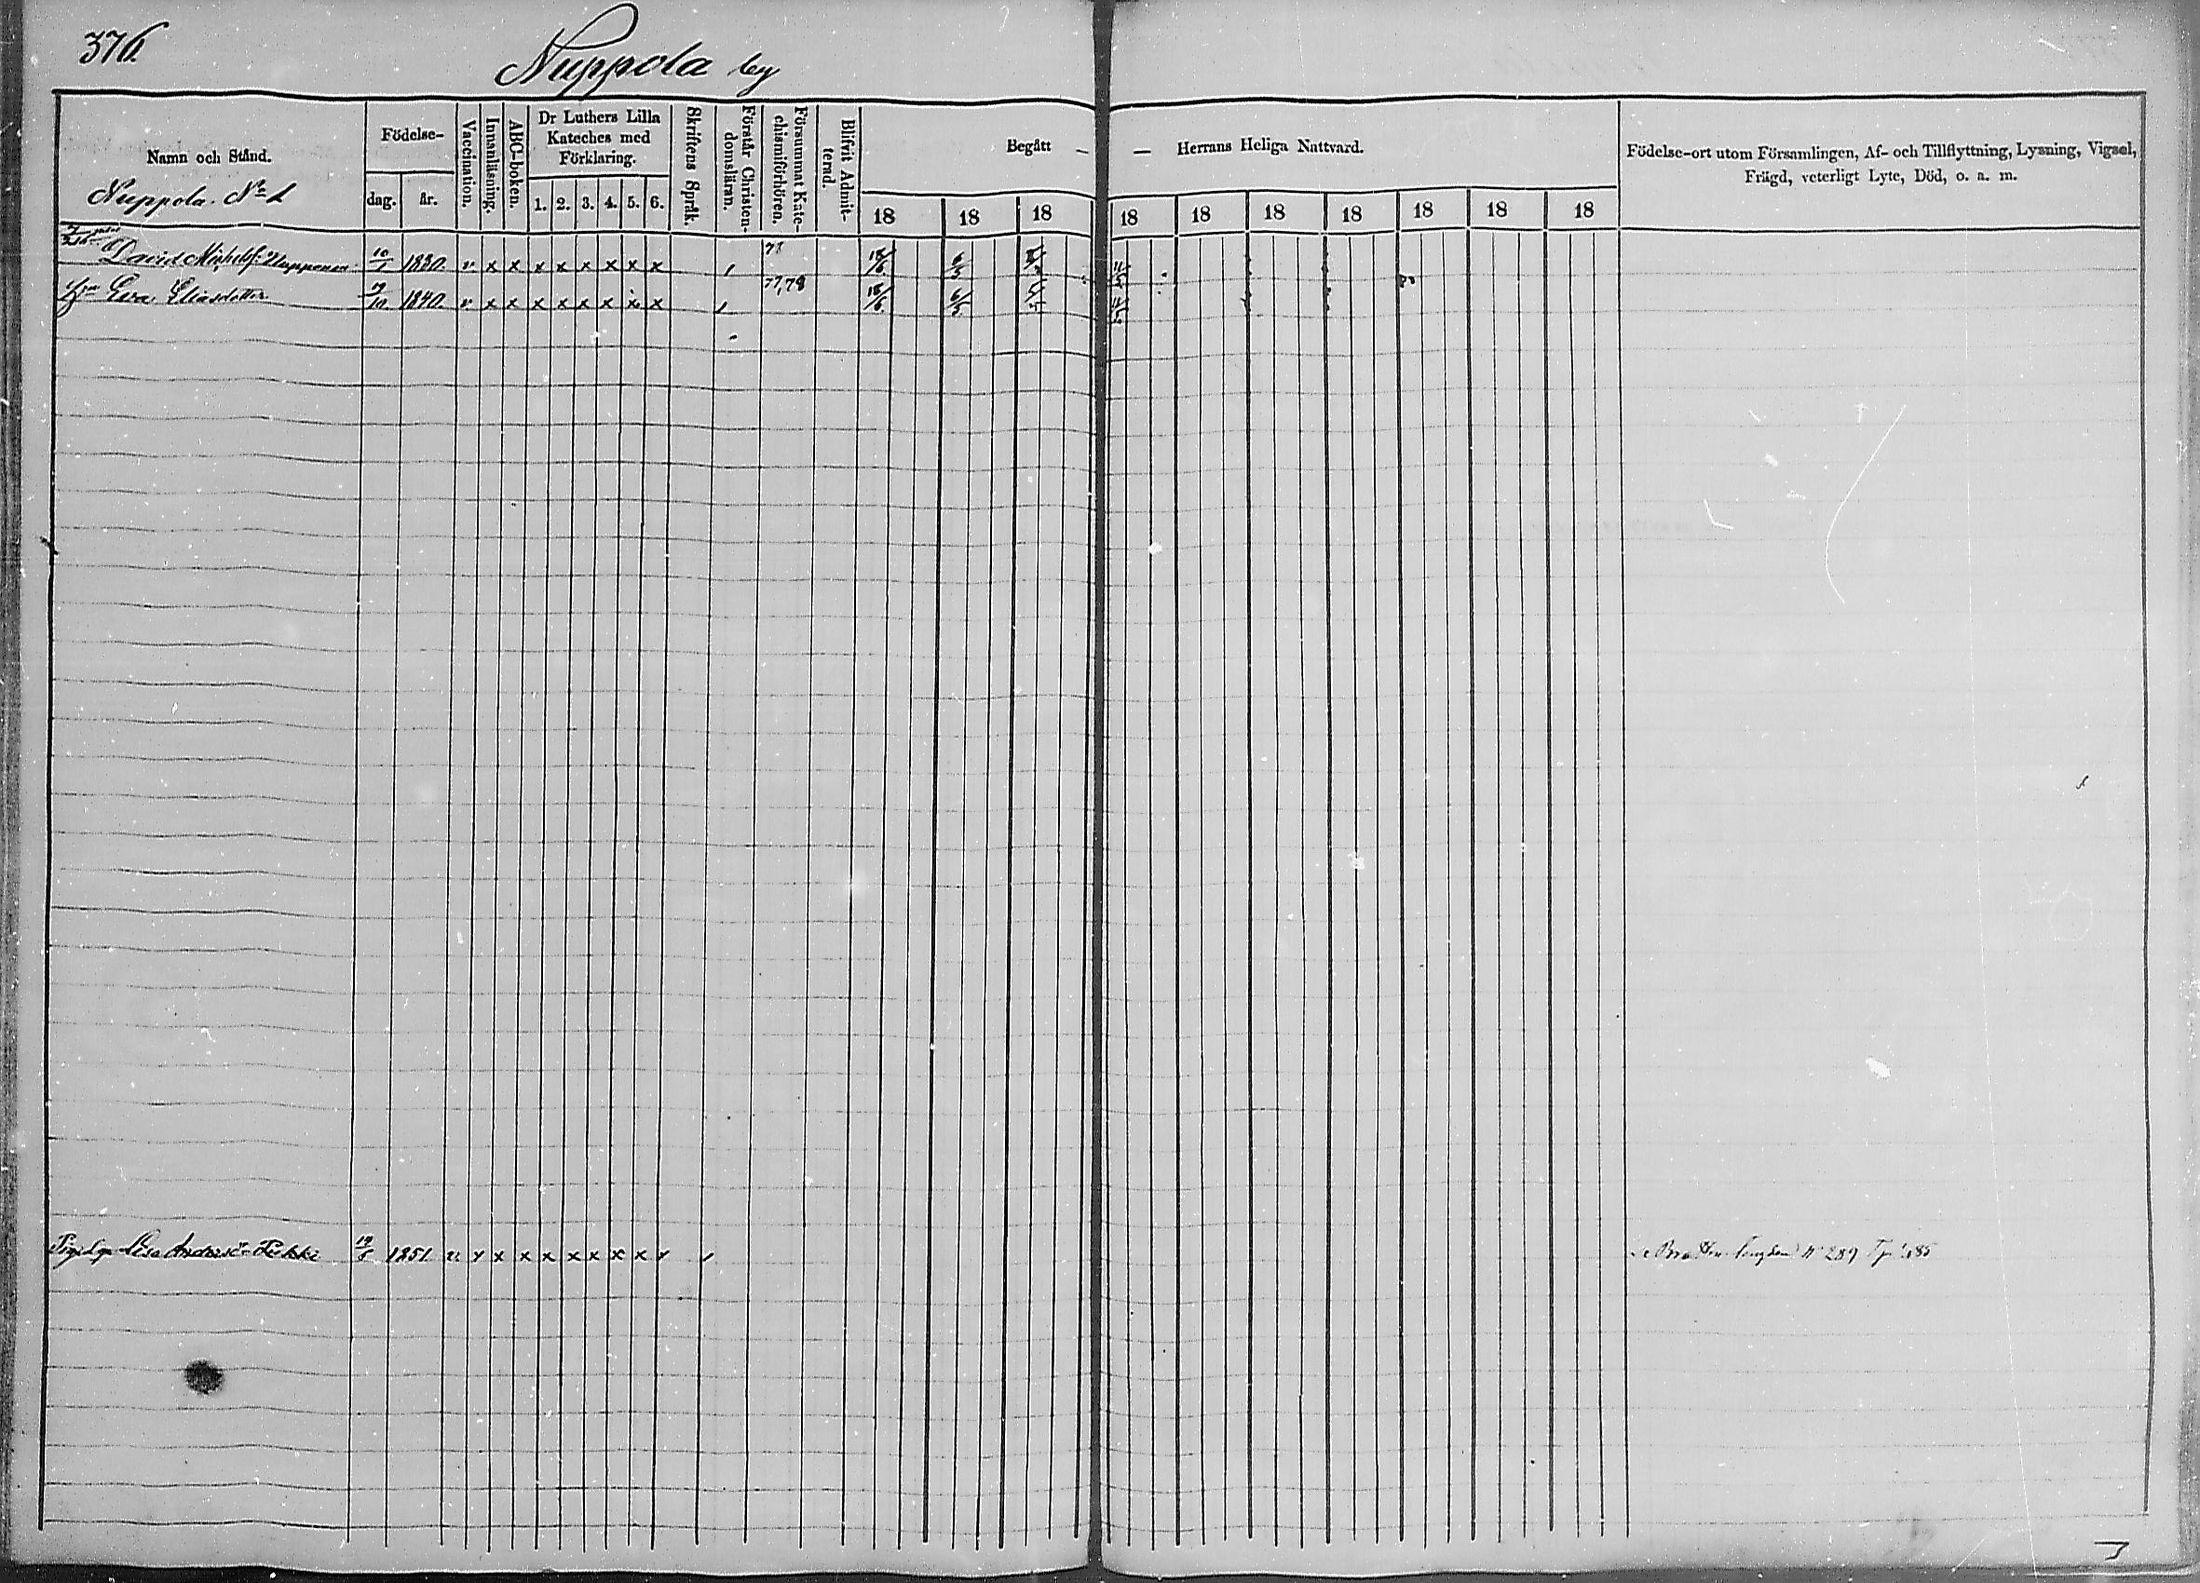 376.
Nuppola by
Namn och Stånd.
Födelse-
dag. år.
Vaccination.
Innanläsning.
ABC-boken.
Dr Luthers Lilla
Kateches med
Förklaring.
1. 2. 3. 4. 5. 6.
Skriftens Språk.
Förstår Christen-
domsläran.
Försummat Kate-
chismiförhören.
Blifvit Admit-
terad.
Begått —
— Herrans Heliga Nattvard.
18 18 18 18 18 18 18 18 18 18
Födelse-ort utom Församlingen, Af- och Tillflyttning, Lysning, Vigsel,
Frägd, veterligt Lyte, Död, o. a. m.
Nuppola. No 1
David Michelsf. Nupponen 10/1 1830. v x x x x x x x x 78 18/6 6/5 11/5
Hru Eva Eliasdotter 9/10 1840. v. x x x x x x x x 77,78 18/6 6/5 11/5
Lisa Andersd: 19/5 1851 v x x x x x x x x
No 289